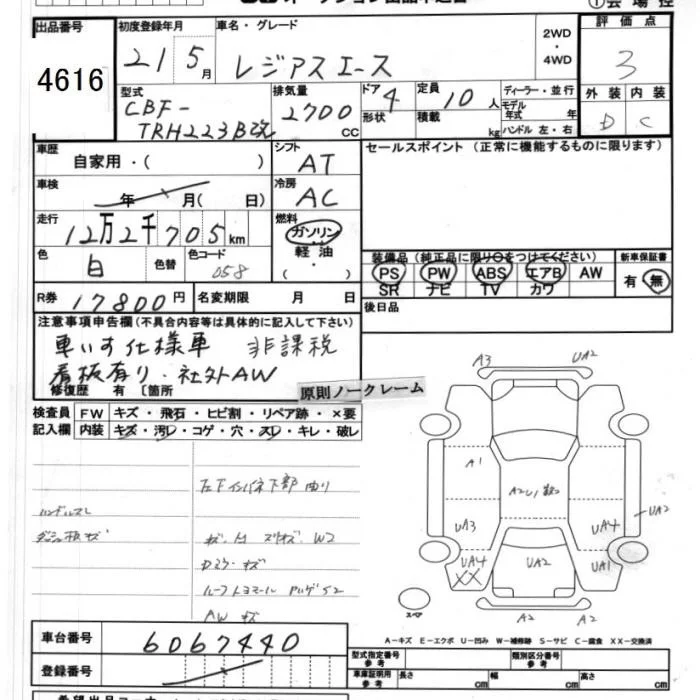 オークション出品申込書
①会場控
出品番号
4616
初度登録年月
21 5月
車名・グレード
レジアスエース
2WD
・
4WD
評価点
3
外装 内装
D C
型式
CBF-
TRH223B改
排気量
2700 cc
ドア 4
形状
定員
10人
積載
kg
ディーラー・並行
モデル
年式 年
ハンドル 左・右
車歴
自家用・( )
シフト
AT
セールスポイント (正常に機能するものに限ります)
車検
年 月( 日)
冷房
AC
走行
12万2千705km
燃料
ガソリン
軽油
( )
色
白
色替
色コード
058
装備品(純正品に限り○をつけてください)
PS PW ABS エアB AW
SR ナビ TV カワ
新車保証書
有 無
R券
17800円
名変期限 月 日
後日品
注意事項申告欄(不具合内容等は具体的に記入して下さい)
車いす仕様車 非課税
看板有り・社外AW
修復歴 有 〔箇所
原則ノークレーム
検査員
記入欄
FW キズ・飛石・ヒビ割・リペア跡・×要
内装 キズ・汚レ・コゲ・穴・スレ・キレ・破レ
左下インパネ下部曲り
ハンドルスレ
キズ
AW キズ
A3 UA2
A1
A2U1
UA3 UA4 UA2
UA4 UA2 UA1
XX
A2 A2
スペア
A-キズ E-エクボ U-凹み W-補修跡 S-サビ C-腐食 XX-交換済
車台番号
6067440
登録番号
型式指定番号
参考
類別区分番号
参考
車庫証明用
参考
長さ cm 幅 cm 高さ cm
希望出品コーナー